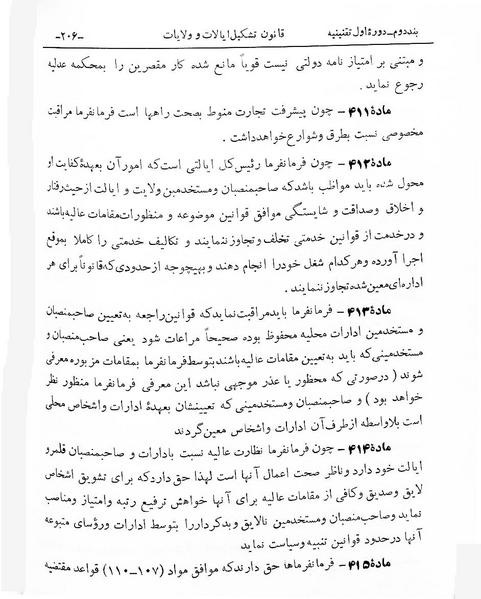 بند دوم ـ دورهٔ اول تقنینیه قانون تشکیل ایالات و ولایات ـ۲۰۶ـ
و مبتنی بر امتیاز نامه دولتی نیست قویاً مانع شده کار مقصرین را بمحکمه عدلیه
رجوع نماید .
مادهٔ ۴۱۱ ـ چون پیشرفت تجارت منوط بصحت راهها است فرمانفرما مراقبت
مخصوصی نسبت بطرق وشوارع خواهدداشت .
مادهٔ ۴۱۲ ـ چون فرمانفرما رئیس کل ایالتی است که امور آن بعهدهٔ کفایت او
محول شده باید مواظب باشدکه صاحبمنصبان ومستخدمین ولایت و ایالت از حیث رفتار
و اخلاق وصداقت و شایستگی موافق قوانین موضوعه و منظورات مقامات عالیه باشند
و درخدمت از قوانین خدمتی تخلف وتجاوز ننمایند و تکالیف خدمتی را کاملا بموقع
اجرا آورده وهرکدام شغل خودرا انجام دهند و بهیچوجه از حدودی که قانوناً برای هر
اداره‌ای معین شده تجاوز ننمایند .
مادهٔ ۴۱۳ ـ فرمانفرما باید مراقبت نماید که قوانین راجعه به تعیین صاحبمنصبان
و مستخدمین ادارات محلیه محفوظ بوده صحیحاً مراعات شود یعنی صاحب‌منصبان و
مستخدمینی که باید به تعیین مقامات عالیه باشند بتوسط فرمانفرما بمقامات مزبوره معرفی
شوند ( درصورتی که محظور یا عذر موجهی نباشد این معرفی فرمانفرما منظور نظر
خواهد بود ) و صاحبمنصبان ومستخدمینی که تعیینشان بعهدهٔ ادارات واشخاص محلی
است بلاواسطه از طرف آن ادارات واشخاص معین گردند
مادهٔ ۴۱۴ ـ چون فرمانفرما نظارت عالیه نسبت بادارات و صاحبمنصبان قلمرو
ایالت خود دارد وناظر صحت اعمال آنها است لهذا حق دارد که برای تشویق اشخاص
لایق وصدیق وکافی از مقامات عالیه برای آنها خواهش ترفیع رتبه وامتیاز ومناصب
نماید وصاحب‌منصبان ومستخدمین نالایق وبدکردار را بتوسط ادارات ورؤسای متبوعه
آنها در حدود قوانین تنبیه وسیاست نماید
مادهٔ ۴۱۵ ـ فرمانفرماها حق دارند که موافق مواد (۱۰۷ـ۱۱۰) قواعد مقتضیه